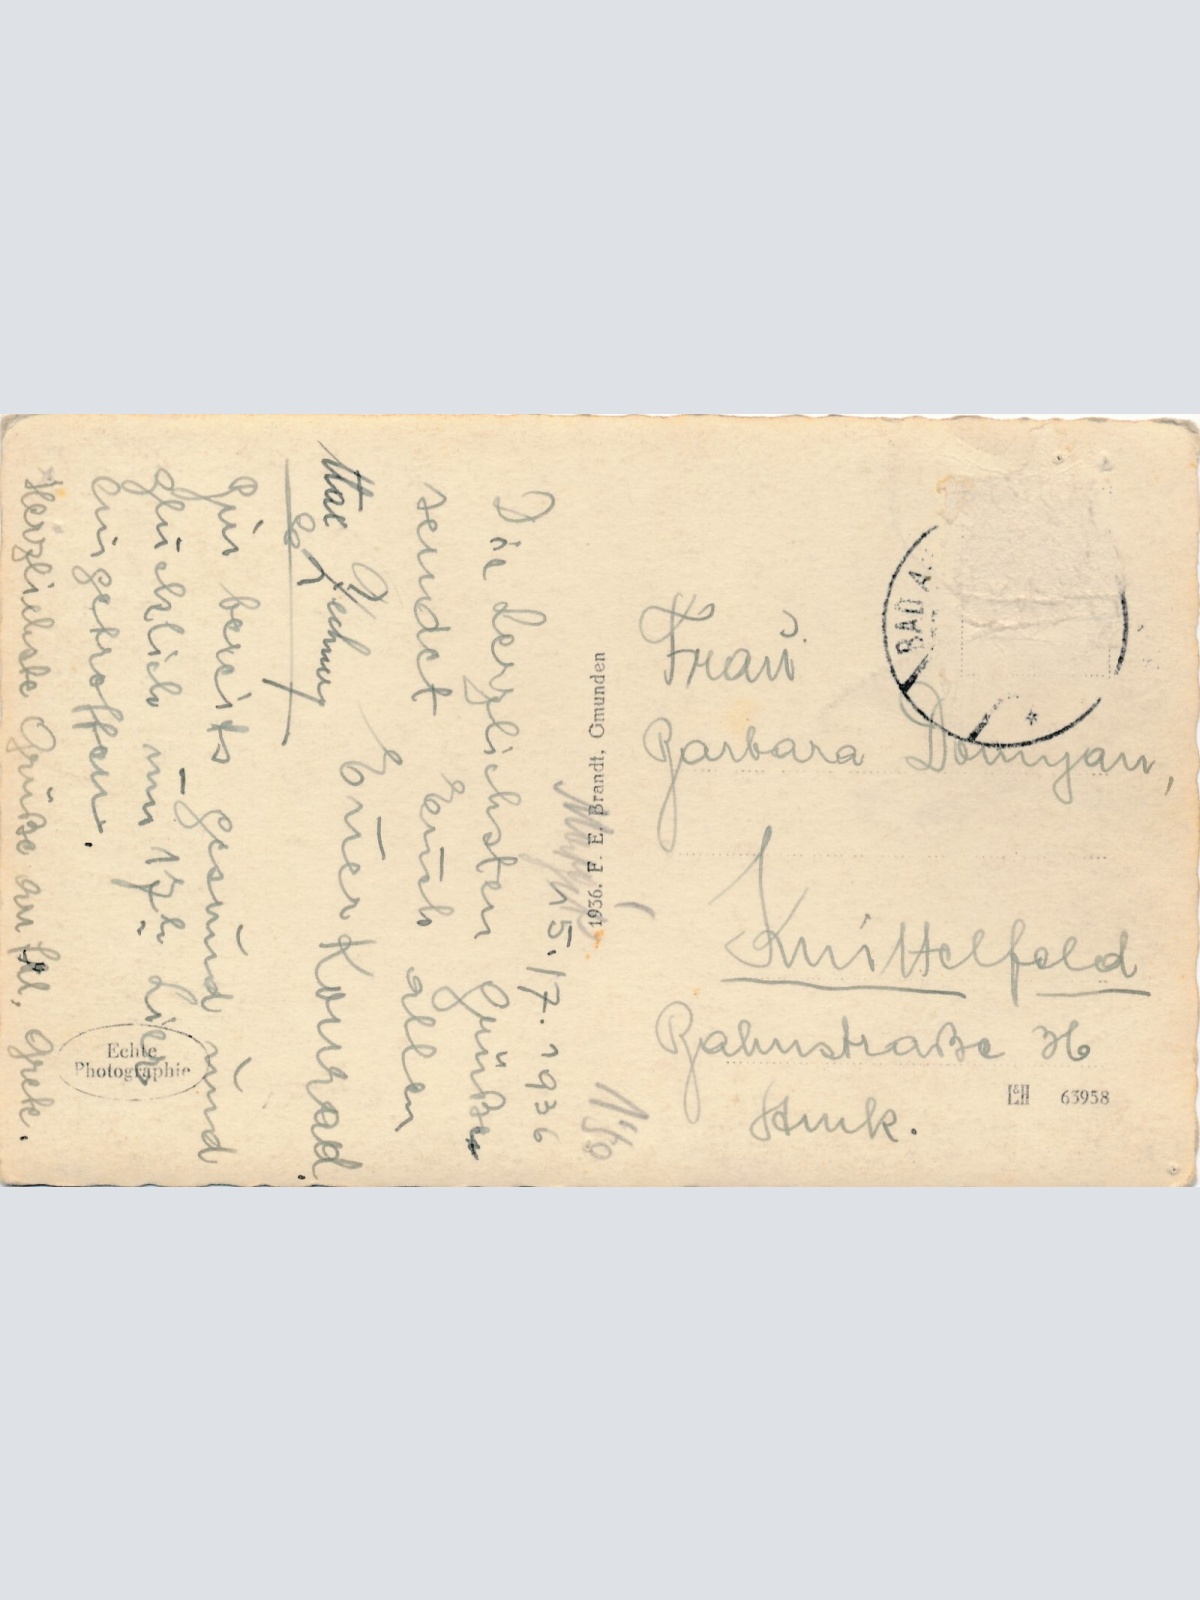 15./7. 1936
Die herzlichsten Grüße
sendet Euch allen
Euer Konrad
Bin bereits gesund und
glücklich um 17h hier
eingetroffen.
Herzlichste Grüße an
1936. F. E. Brandt, Gmunden
BAD A
Frau
Barbara Domyan,
Knittelfeld
Bahnstraße 36
Stmk.
63958
Echte
Photographie